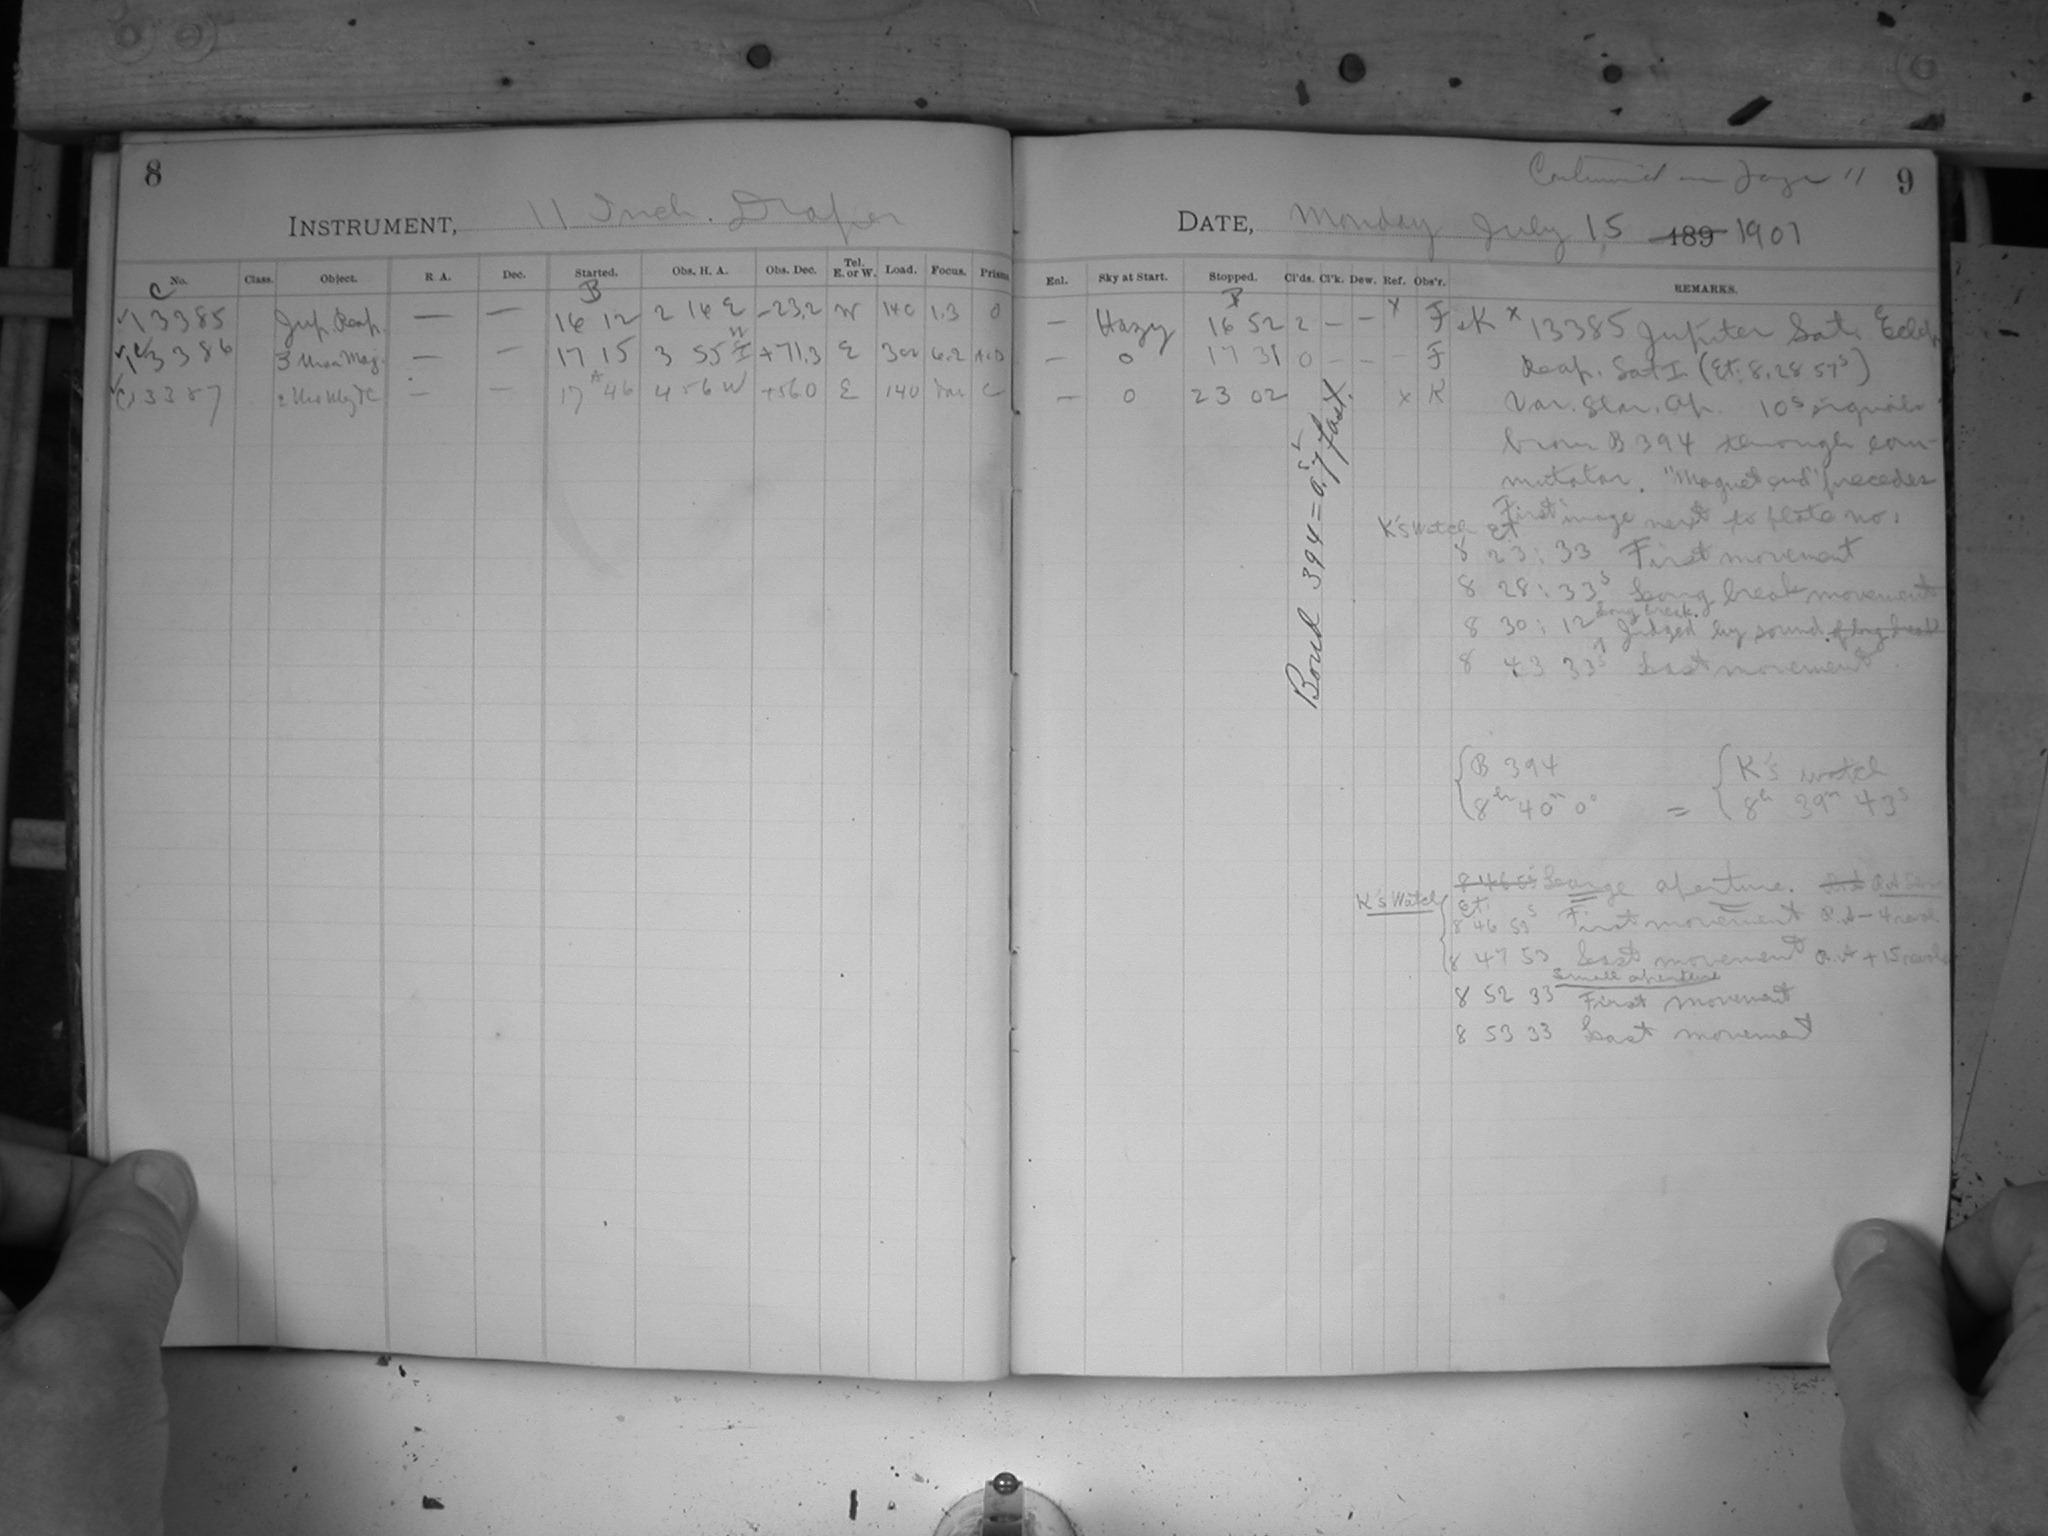 8
INSTRUMENT, 11 Inch. Draper
No. Class. Object. R A. Dec. Started. Obs. H. A. Obs. Dec. Tel. E. or W. Load. Focus. Prism
C B
13385 Jup. Reap. — — 16 12 2 14 E -23.2 W 140 1.3 0
13386 — — 17 15 3 55 W +71.3 E 300 6.2
C13387 — — 17 46 4 56 W +56.0 E 140 C
Continued on Page 11 9
DATE, Monday July 15 189 1901
Enl. Sky at Start. Stopped. Cl'ds. Cl'k. Dew. Ref. Obs'r. REMARKS.
— Hazy 16 52 2 — — x F.K x 13385 Jupiter Sat. Eclip.
— 0 17 31 0 — — — F Reap. Sat I. (Et. 8.28 57s)
— 0 23 02 x K Var. Star. Ap. 10s signals
from B 394 through com-
mutator. "Magnet end" precedes
First image next to plate no.
K's Watch Et
8 23: 33 First movement
8 28: 33s Long break movement
8 30: 12 long break. Judged by sound of long break
8 43 33s Last movement
Bond 394 = 0.7s fast.
B 394 K's watch
8h 40m 0s = 8h 39m 43s
8 46 53 Large aperture.
K's Watch Et.
8 46 53s First movement R.A - 4 revol
8 47 53 Last movement R.A + 15 revol
Small aperture
8 52 33 First movement
8 53 33 Last movement